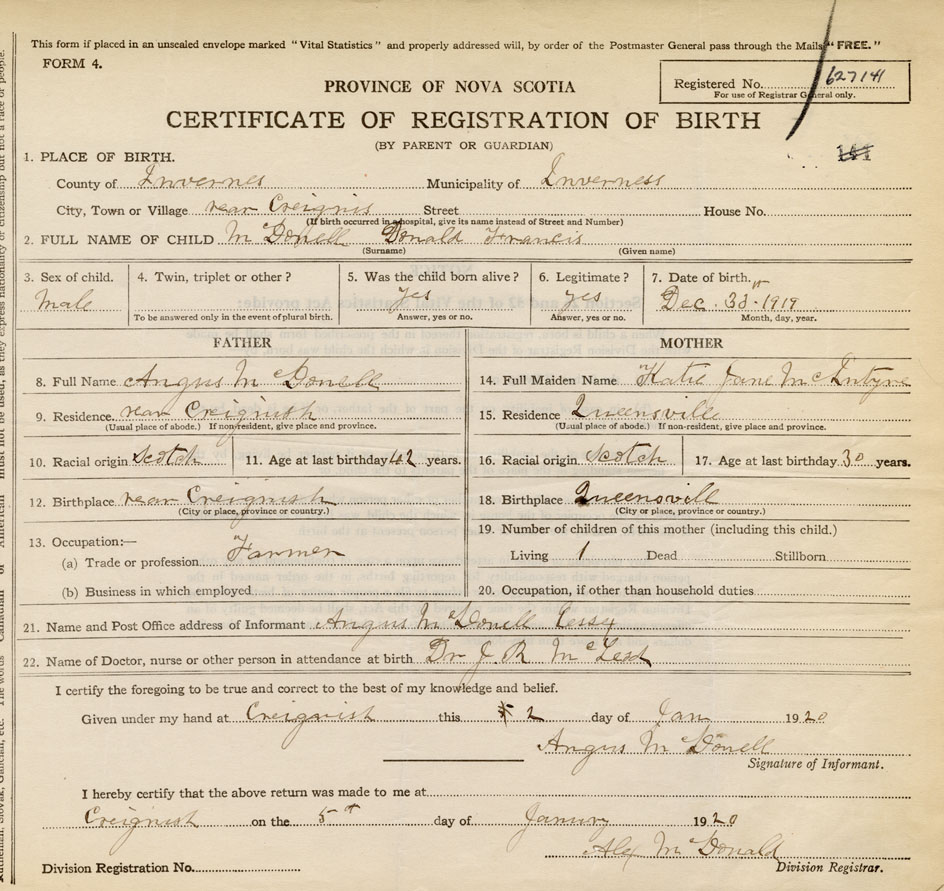 This form if placed in an unsealed envelope marked "Vital Statistics" and properly addressed will, by order of the Postmaster General pass through the Mails "FREE."
FORM 4.
Registered No. 627141
For use of Registrar General only.
PROVINCE OF NOVA SCOTIA
CERTIFICATE OF REGISTRATION OF BIRTH
(BY PARENT OR GUARDIAN)
144
1. PLACE OF BIRTH.
County of Invernes Municipality of Inverness
City, Town or Village rear Creignis Street House No.
(If birth occurred in a hospital, give its name instead of Street and Number)
2. FULL NAME OF CHILD McDonell Donald Francis
(Surname) (Given name)
3. Sex of child. 4. Twin, triplet or other? 5. Was the child born alive? 6. Legitimate? 7. Date of birth.
Male yes yes Dec. 1919
To be answered only in the event of plural birth. Answer, yes or no. Answer, yes or no. Month, day, year.
FATHER MOTHER
8. Full Name Angus McDonell 14. Full Maiden Name Katie Jane McIntyre
9. Residence rear Creignish 15. Residence Queensville
(Usual place of abode.) If non-resident, give place and province. (Usual place of abode.) If non-resident, give place and province.
10. Racial origin Scotch 11. Age at last birthday 42 years. 16. Racial origin Scotch 17. Age at last birthday 30 years.
12. Birthplace rear Creignish 18. Birthplace Queensvill
(City or place, province or country.) (City or place, province or country.)
13. Occupation:— 19. Number of children of this mother (including this child.)
(a) Trade or profession Farmer Living 1 Dead Stillborn
(b) Business in which employed 20. Occupation, if other than household duties
21. Name and Post Office address of Informant Angus McDonell
22. Name of Doctor, nurse or other person in attendance at birth Dr J. R McLeod
I certify the foregoing to be true and correct to the best of my knowledge and belief.
Given under my hand at Creignish this 2 day of Jan 1920
Angus McDonell
Signature of Informant.
I hereby certify that the above return was made to me at
Creignish on the 5th day of January 1920
Alex McDonald
Division Registration No. Division Registrar.